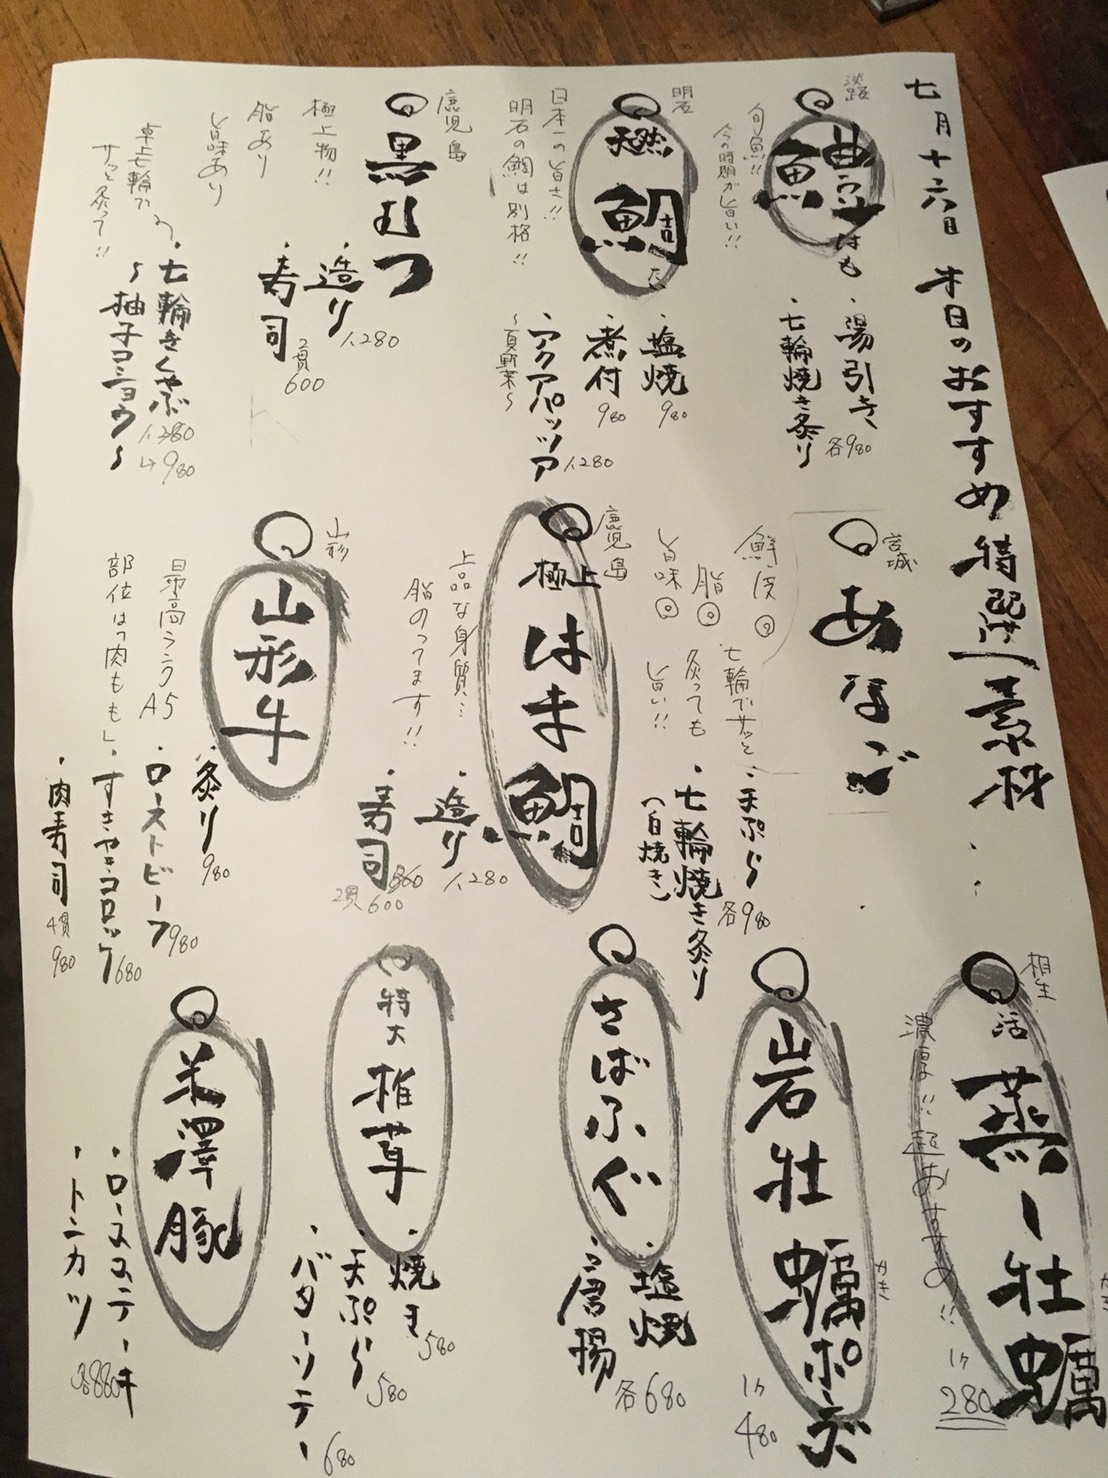 七月十六日 本日のおすすめ特選素材
淡路
鱧はも
旬魚!!
今の時期が旨い!!
・湯引き
・七輪焼き炙り
各980
明石
天然鯛
たい
日本一の旨さ!!
明石の鯛は別格!!
・塩焼 980
・煮付 980
・アクアパッツァ 1,280
〜夏野菜〜
鹿児島
黒むつ
極上物!!
脂あり
旨味あり
・造り 1,280
・寿司 2貫 600
・七輪きくやぶ 1,380
↳980
〜柚子コショウ〜
卓上七輪で
サッと炙って!!
宮城
あなご
鮮度◎
脂◎
旨味◎
七輪でサッと
炙っても
旨い!!
・天ぷら
・七輪焼き炙り
(白焼き)
各980
鹿児島
極上はま鯛
上品な身質…
脂のってます!!
・造り 1,280
・寿司 2貫 600
山形
山形牛
最高ランクA5
部位は「肉もも」
・炙り 980
・ローストビーフ 980
・すきやきコロッケ 680
・肉寿司 4貫 980
相生
活 蒸し牡蠣
かき
濃厚!! 超おすすめ!!
1ヶ 280
岩牡蠣ポン酢
かき
1ヶ 480
さばふぐ
・塩焼
・唐揚
各680
特大椎茸
・焼き 580
・天ぷら 580
・バターソテー 680
米澤豚
・ロースステーキ
・トンカツ
各880